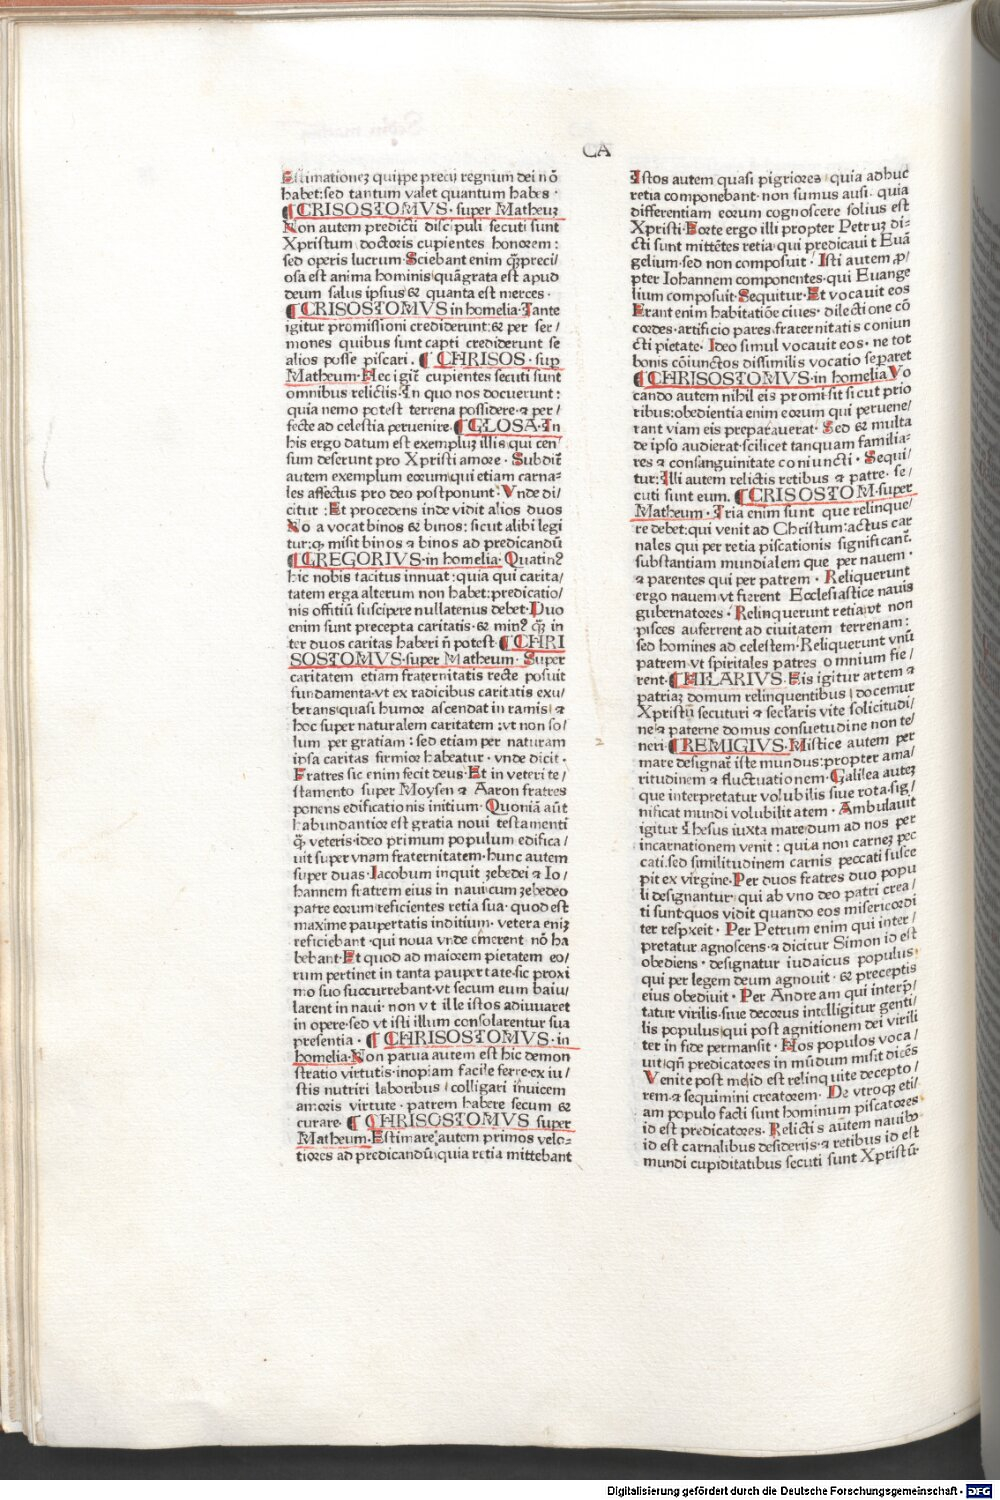 CA
Estimationez quippe precij regnum dei nō
habet: sed tantum valet quantum habes ·
¶ CRISOSTOMVS · super Matheuz
Non autem predicti discipuli secuti sunt
Xpristum doctoris cupientes honorem:
sed operis lucrum · Sciebant enim q̄ preci/
osa est anima hominis quā grata est apud
deum salus ipsius & quanta est merces ·
¶ CRISOSTOMVS in homelia · Tante
igitur promissioni crediderunt: & per ser/
mones quibus sunt capti crediderunt se
alios posse piscari . ¶ CHRISOS · sup
Matheum · Hec igit̄ cupientes secuti sunt
omnibus relictis · In quo nos docuerunt:
quia nemo potest terrena possidere · ⁊ per/
fecte ad celestia peruenire · ¶ GLOSA · In
his ergo datum est exempluz illis qui cen/
sum deserunt pro Xpristi amore · Subdit̄
autem exemplum eorum qui etiam carna-
les affectus pro deo postponunt · Vnde di/
citur : Et procedens inde vidit alios duos
No a vocat binos & binos: sicut alibi legi
tur: q; misit binos ⁊ binos ad predicandū
¶ GREGORIVS · in homelia · Quatin9
hic nobis tacitus innuat: quia qui carita/
tatem erga alterum non habet: predicatio/
nis offitiū suscipere nullatenus debet · Duo
enim sunt precepta caritatis · & min9 q̄ in
ter duos caritas haberi n̄ potest · ¶ CHRI
SOSTOMVS · super Matheum · Super
caritatem etiam fraternitatis recte posuit
fundamenta · vt ex radicibus caritatis exu/
berans quasi humor ascendat in ramis: ⁊
hoc super naturalem caritatem : vt non so/
lum per gratiam : sed etiam per naturam
ipsa caritas firmior habeatur · vnde dicit ·
Fratres sic enim fecit deus · Et in veteri te/
stamento super Moysen ⁊ Aaron fratres
ponens edificationis initium · Quoniā aūt
habundantior est gratia noui testamenti
q̄ veteris · ideo primum populum edifica/
uit super vnam fraternitatem · hunc autem
super duas · Iacobum inquit zebedei ⁊ Io/
hannem fratrem eius in naui cum zebedeo
patre eorum reficientes retia sua · quod est
maxime paupertatis inditium · vetera eniz
reficiebant · qui noua vnde emerent nō ha
bebant · Et quod ad maiorem pietatem eo/
rum pertinet in tanta paupertate · sic proxi
mo suo succurrebant · vt secum eum baiu/
larent in naui · non vt ille istos adiuuaret
in opere · sed vt isti illum consolarentur sua
presentia · ¶ CHRISOSTOMVS · in
homelia · Non parua autem est hic demon
stratio virtutis · inopiam facile ferre · ex iu/
stis nutriri laboribus : colligari inuicem
amoris virtute · patrem habere secum &
curare · ¶ CHRISOSTOMVS super
Matheum · Estimare autem primos velo-
tiores ad predicandū: quia retia mittebant
Istos autem quasi pigriores · quia adhuc
retia componebant · non sumus ausi · quia
differentiam eorum cognoscere solius est
Xpristi · Forte ergo illi propter Petruz di-
cti sunt mittētes retia · qui predicauit Euā
gelium · sed non composuit · Isti autem p̱/
pter Iohannem componentes · qui Euange
lium composuit · Sequitur · Et vocauit eos
Erant enim habitatiōe ciues · dilectione cō
cordes · artificio pares fraternitatis coniun
cti pietate · Ideo simul vocauit eos · ne tot
bonis cōiunctos dissimilis vocatio separet
¶ CHRISOSTOMVS · in homelia Vo
cando autem nihil eis promisit sicut prio
ribus: obedientia enim eorum qui peruene/
rant viam eis preparauerat · Sed & multa
de ipso audierat · scilicet tanquam familia-
res ⁊ consanguinitate coniuncti · Sequi/
tur: Illi autem relictis retibus ⁊ patre · se/
cuti sunt eum . ¶ CRISOSTOM · super
Matheum · Tria enim sunt que relinque/
re debet: qui venit ad Christum: actus car
nales qui per retia piscationis significant̄ ·
substantiam mundialem que per nauem ·
⁊ parentes qui per patrem · Reliquerunt
ergo nauem vt fierent Ecclesiastice nauis
gubernatores · Relinquerunt retia vt non
pisces auferrent ad ciuitatem terrenam:
sed homines ad celestem · Reliquerunt vnū
patrem vt spiritales patres omnium fie/
rent · ¶ HILARIVS · Eis igitur artem ⁊
patriaz domum relinquentibus docemur
Xpristū secuturi ⁊ seclaris vite solicitudi/
ne ⁊ paterne domus consuetudine non te/
neri · ¶ REMIGIVS · Mistice autem per
mare designat̄ iste mundus: propter ama/
ritudinem ⁊ fluctuationem · Galilea autez
que interpretatur volubilis siue rota · sig/
nificat mundi volubilitatem · Ambulauit
igitur Ihesus iuxta mare dum ad nos per
incarnationem venit : quia non carnez pec
cati sed similitudinem carnis peccati susce
pit ex virgine · Per duos fratres duo popu
li designantur: qui ab vno deo patri crea/
ti sunt · quos vidit quando eos misericordi
ter respxeit · Per Petrum enim qui inter/
pretatur agnoscens · ⁊ dicitur Simon id est
obediens · designatur iudaicus populus ·
qui per legem deum agnouit · & preceptis
eius obediuit · Per Andream qui interp̄/
tatur virilis · siue decorus intelligitur genti/
lis populus · qui post agnitionem dei virili
ter in fide permansit · Nos populos voca/
uit: qn̄ predicatores in mūdum misit dicēs
Venite post me · id est relinquite decepto/
rem · ⁊ sequimini creatorem · De vtroq; eti/
am populo facti sunt hominum piscatores
id est predicatores · Relictis autem nauib9
id est carnalibus desiderijs · ⁊ retibus id est
mundi cupiditatibus secuti sunt Xpristū ·
Digitalisierung gefördert durch die Deutsche Forschungsgemeinschaft · DFG